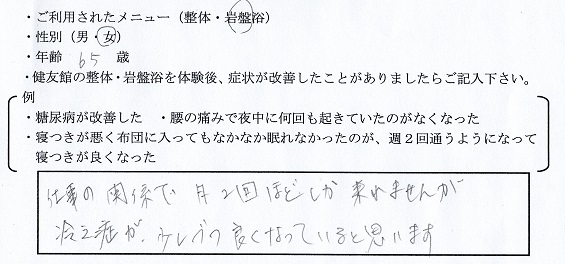 ・ご利用されたメニュー（整体・岩盤浴）
・性別（男・女）
・年齢 65 歳
・健友館の整体・岩盤浴を体験後、症状が改善したことがありましたらご記入下さい。
例
・糖尿病が改善した ・腰の痛みで夜中に何回も起きていたのがなくなった
・寝つきが悪く布団に入ってもなかなか眠れなかったのが、週２回通うようになって
寝つきが良くなった
仕事の関係で 月2回ほどしか 来れませんが
冷え症が、少しづつ 良くなっていると思います